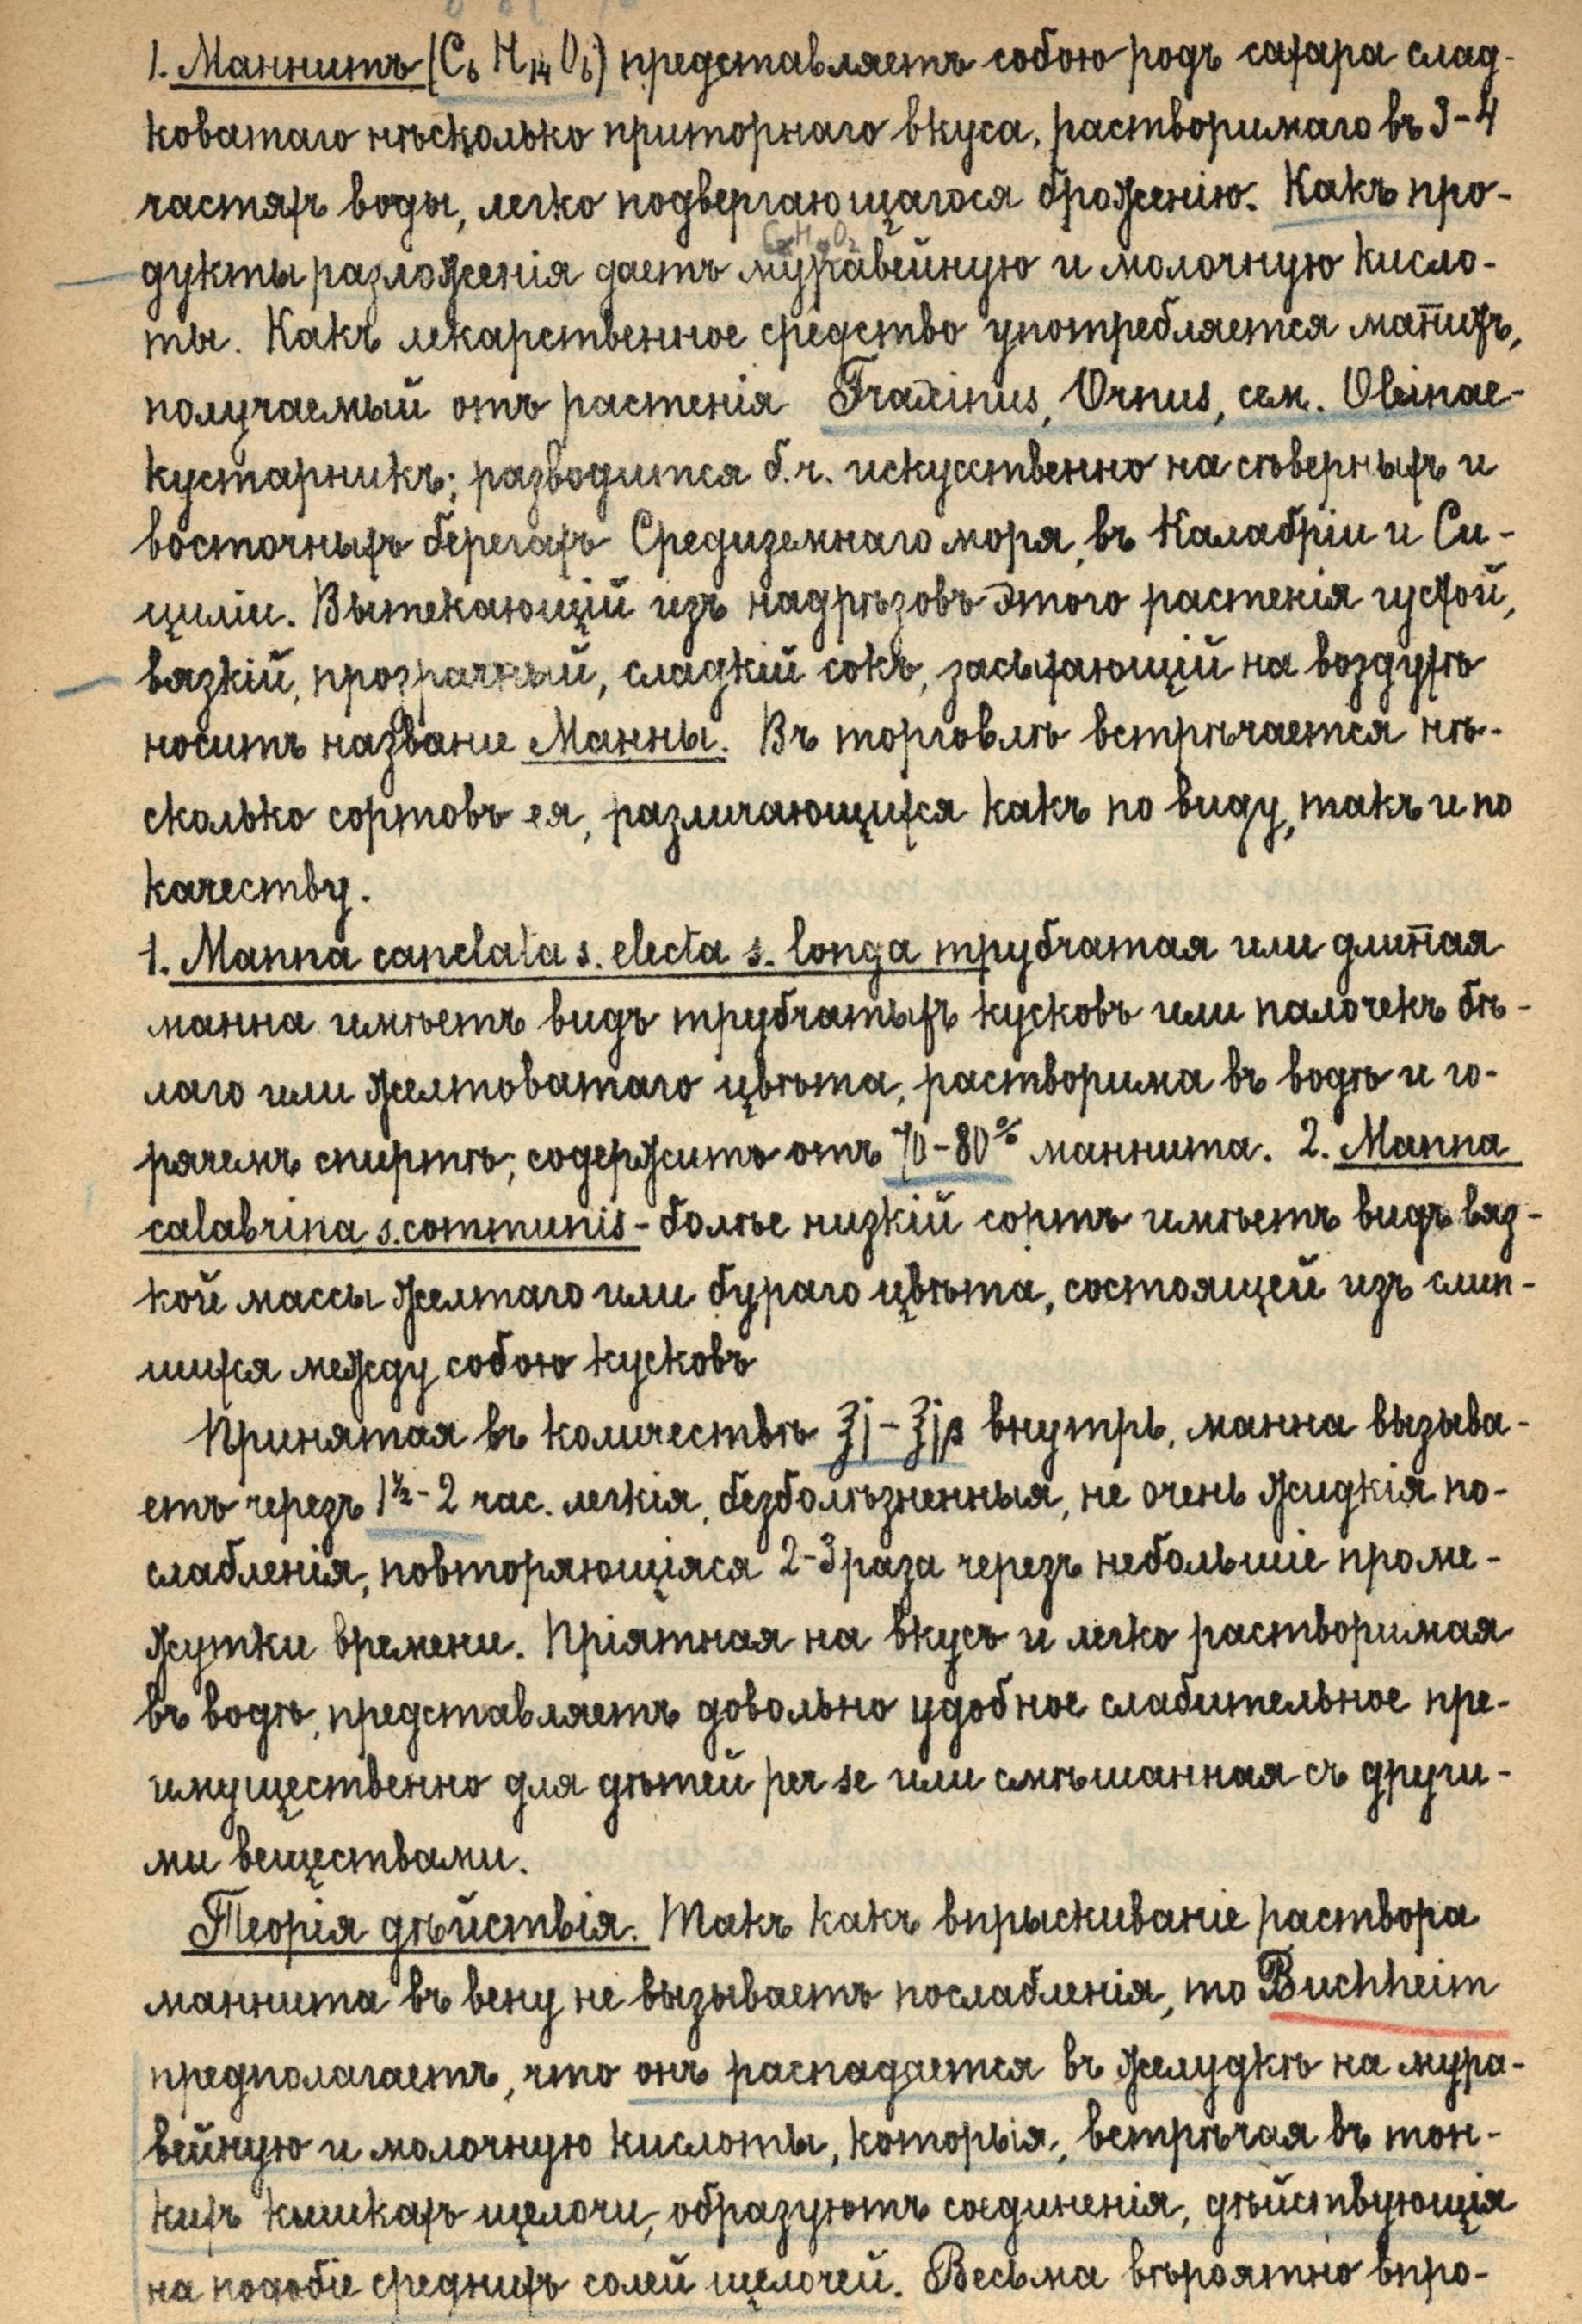 1. Маннитъ (C6 H14 O6) представляетъ собою родъ сахара слад-
коватаго нѣсколько приторнаго вкуса, растворимаго въ 3-4
частяхъ воды, легко подвергающагося броженію. Какъ про-
дукты разложенія даетъ муравейную и молочную кисло-
ты. Какъ лекарственное средство употребляется ман̅итъ,
получаемый отъ растенія Fraxinus, Ornus, сем. Oleinae-
кустарникъ; разводится б.ч. искусственно на сѣверныхъ и
восточныхъ берегахъ Средиземнаго моря, въ Калабріи и Си-
циліи. Вытекающій изъ надрѣзовъ этого растенія густой,
вязкій, прозрачный, сладкій сокъ, засыхающій на воздухѣ
носитъ название Манны. Въ торговлѣ встрѣчается нѣ-
сколько сортовъ ея, различающихся какъ по виду, такъ и по
качеству.
1. Manna canelata s. electa s. longa трубчатая или длин̅ая
манна имѣетъ видъ трубчатыхъ кусковъ или палочекъ бѣ-
лаго или желтоватаго цвѣта, растворима въ водѣ и го-
рячемъ спиртѣ; содержитъ отъ 70-80% маннита. 2. Manna
calabrina s. communis - болѣе низкій сортъ имѣетъ видъ вяз-
кой массы желтаго или бураго цвѣта, состоящей изъ слип-
шихся между собою кусковъ
Принятая въ количествѣ ʒj - ʒjß внутрь, манна вызыва-
етъ черезъ 1½-2 час. легкія, безболѣзненныя, не очень жидкія по-
слабленія, повторяющіяся 2-3 раза черезъ небольшіе проме-
жутки времени. Пріятная на вкусъ и легко растворимая
въ водѣ, представляетъ довольно удобное слабительное пре-
имущественно для дѣтей per se или смѣшанная съ други-
ми веществами.
Теорія дѣйствія. Такъ какъ впрыскиваніе раствора
маннита въ вену не вызываетъ послабленія, то Buchheim
предполагаетъ, что онъ распадается въ желудкѣ на мура-
вейную и молочную кислоты, которыя, встрѣчая въ тон-
кихъ кишкахъ щелочи, образуютъ соединенія, дѣйствующія
на подобіе среднихъ солей щелочей. Весьма вѣроятно впро-